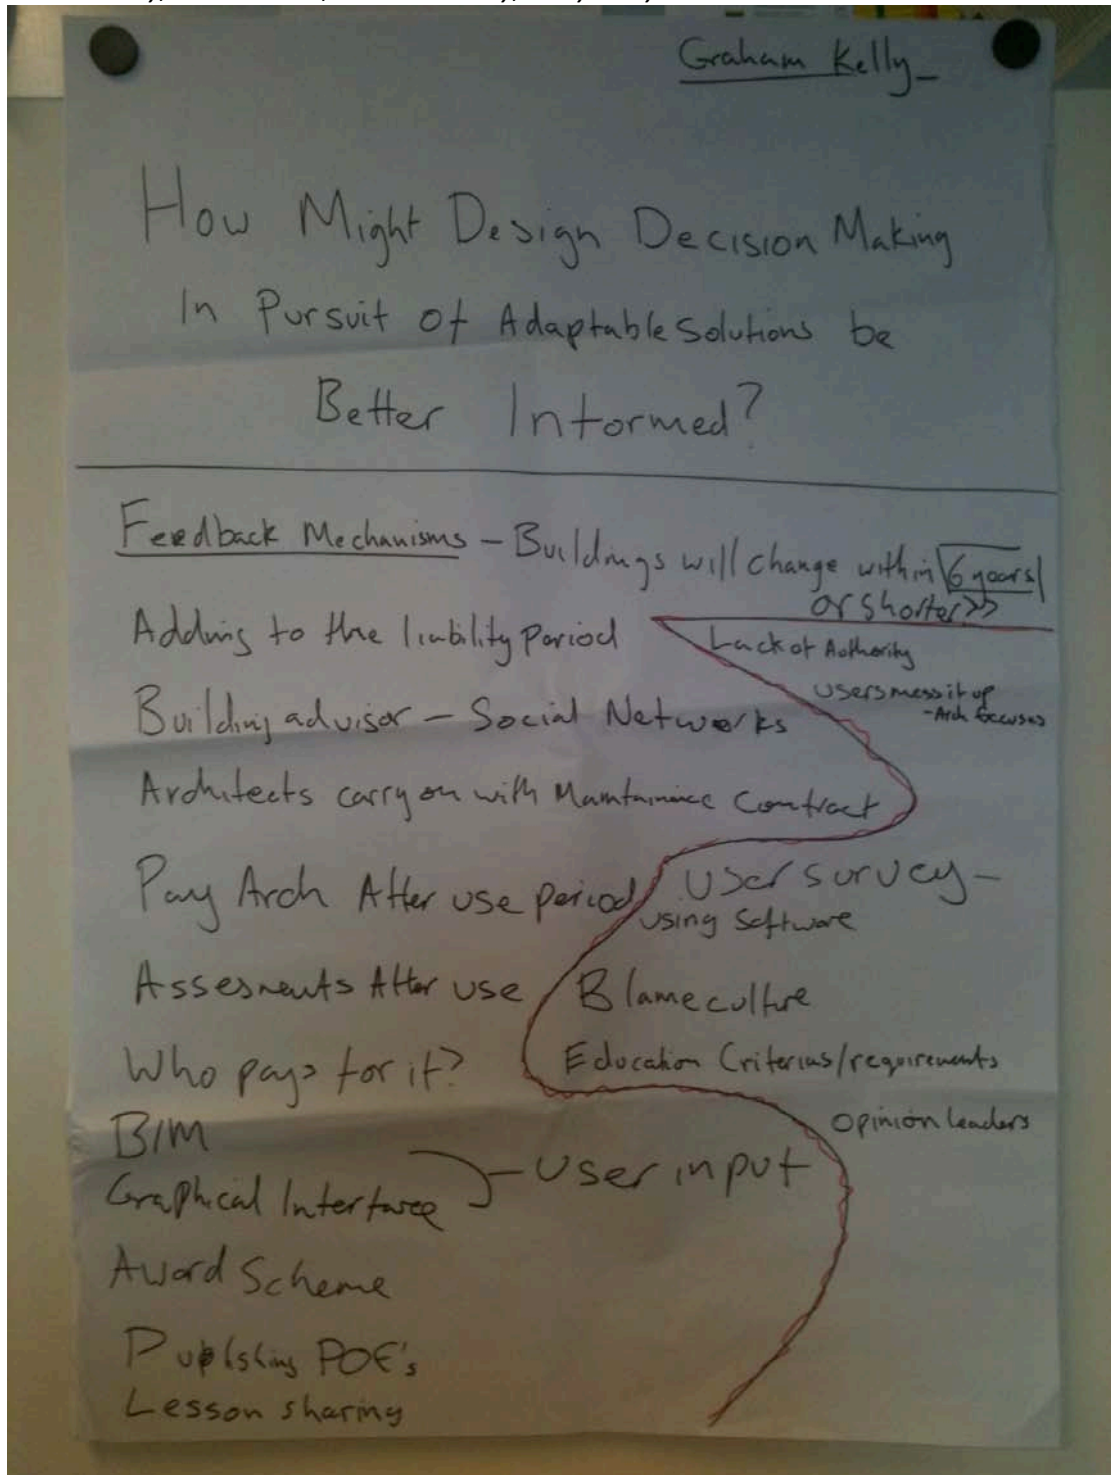 Graham Kelly
How Might Design Decision Making
In Pursuit of Adaptable Solutions be
Better Informed?
Feedback Mechanisms - Buildings will change within 6 years
or shorter >>
Adding to the liability period
Lack of Authority
Users mess it up
- Arch focuses
Building advisor - Social Networks
Architects carry on with Maintainince Contract
Pay Arch After use period
User survey -
using Software
Assesments After use
Blame culture
Who pays for it?
Education Criterias/requirements
Opinion leaders
BIM
Graphical Interface
- User input
Award Scheme
Publishing POE's
Lesson sharing